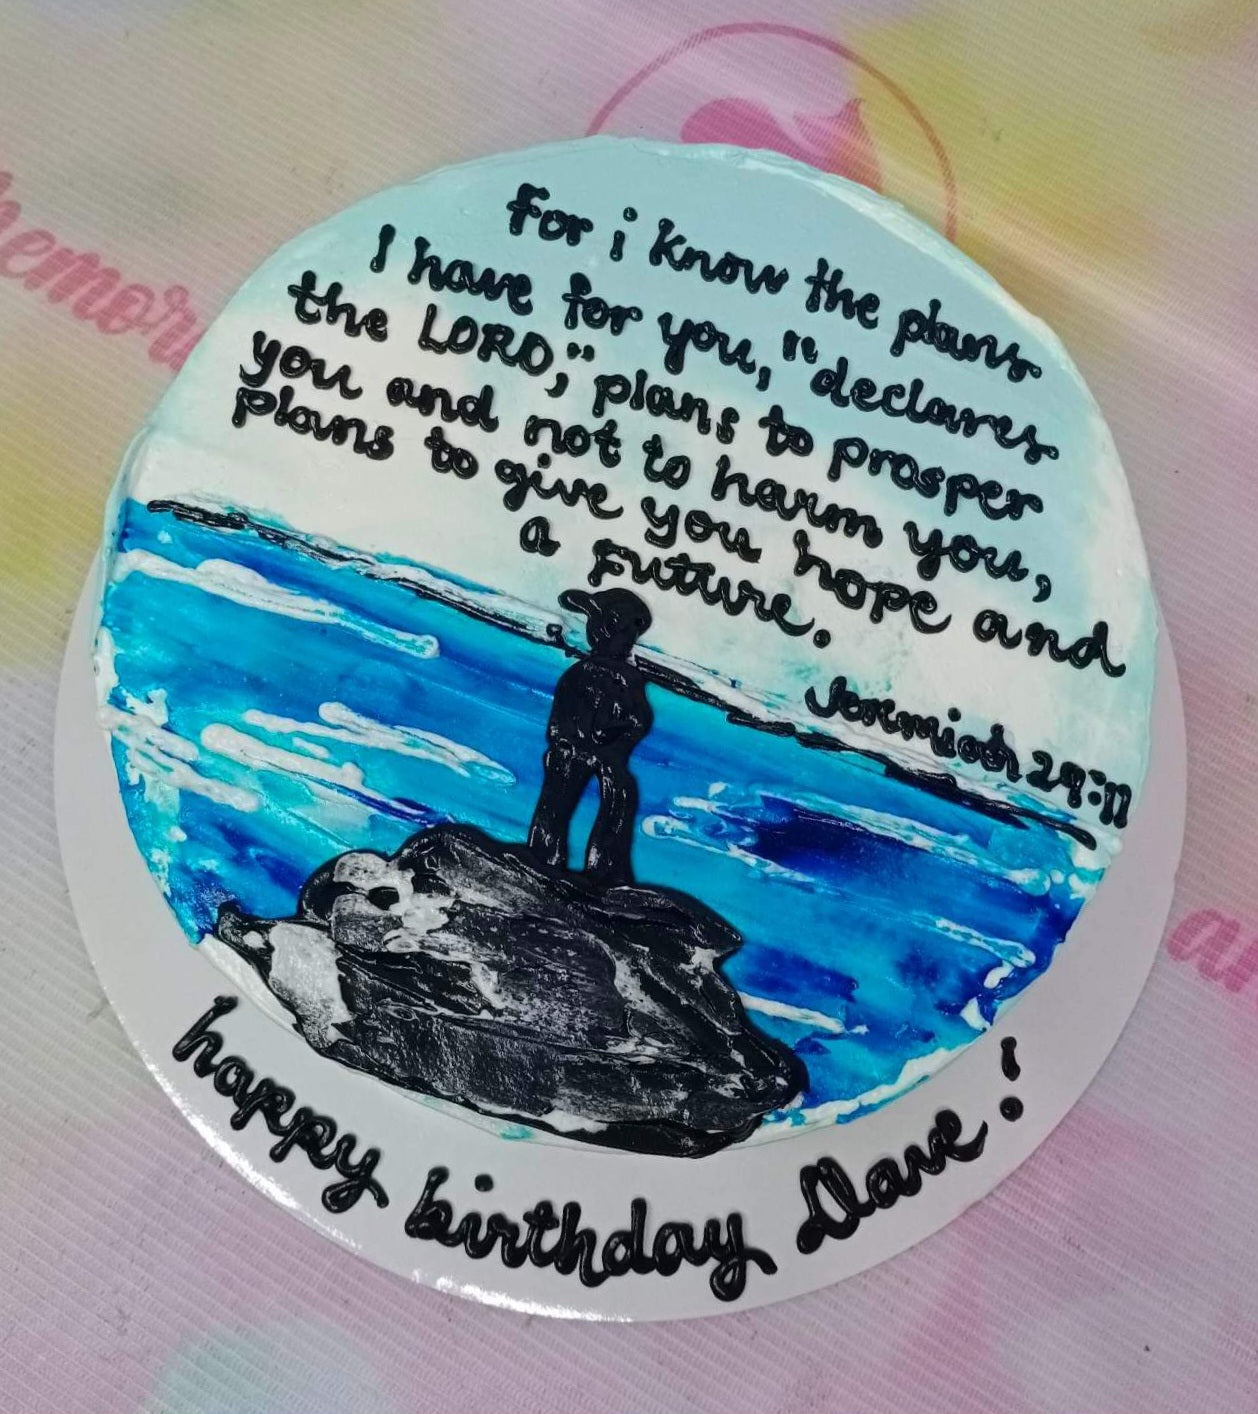 For i know the plans
I have for you, "declares
the LORD," plans to prosper
you and not to harm you,
plans to give you hope and
a future.
Jeremiah 29:11
happy birthday Dave!